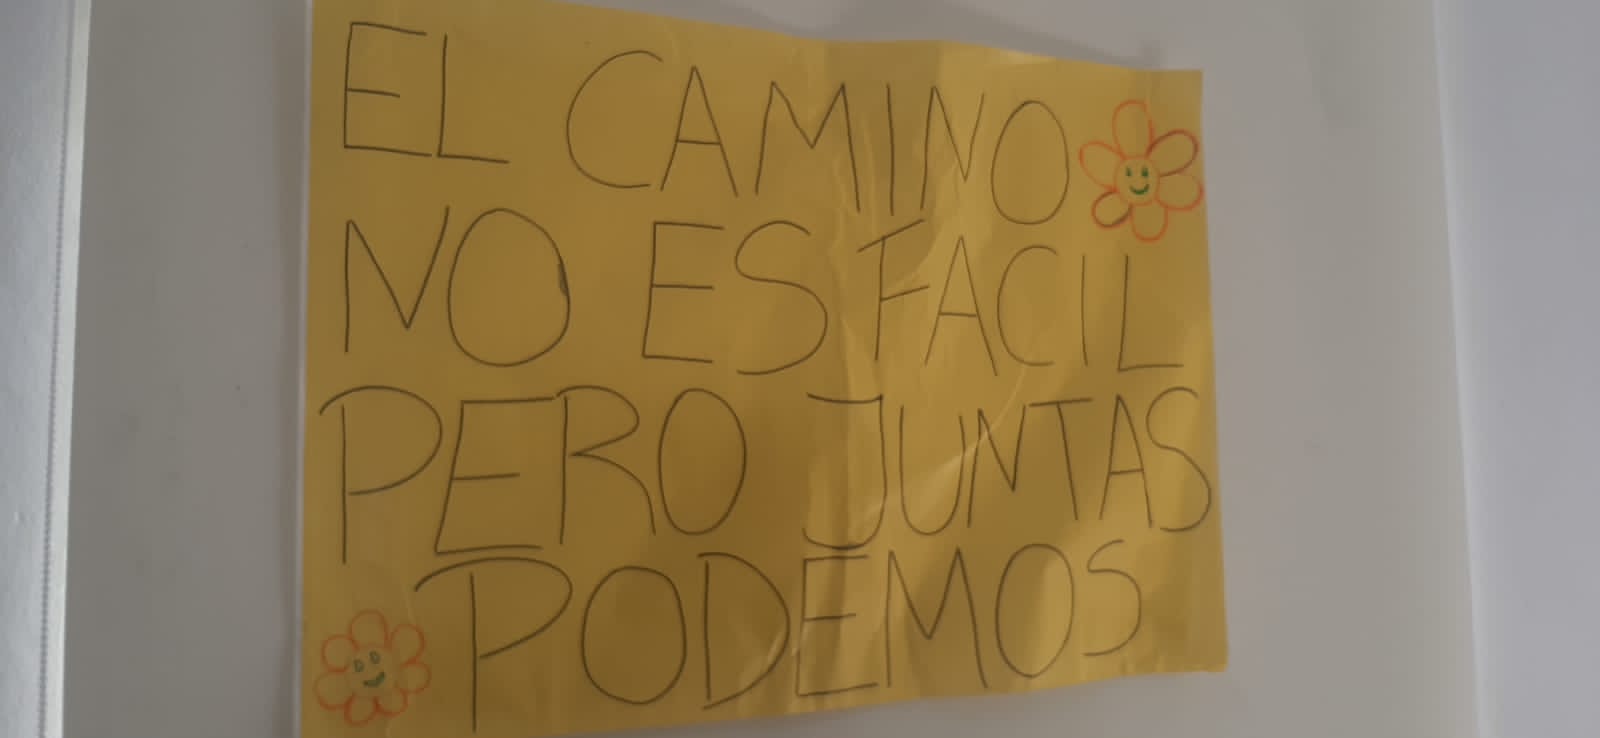 EL CAMINO
NO ES FACIL
PERO JUNTAS
PODEMOS